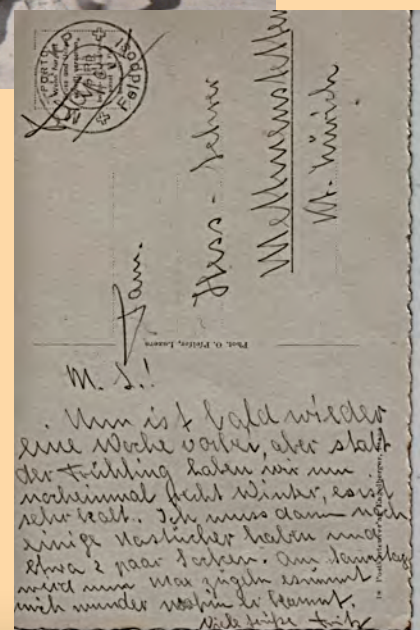 Feldpost
Fam.
Hess - Lehrer
Mettmenstetten
Kt. Zürich
Phot. O. Pfeifer, Luzern
M. L.!
Nun ist bald wieder
eine Woche vorbei, aber statt
der Frühling haben wir nun
nocheinmal recht Winter, es ist
sehr kalt. Ich muss dann noch
einige Nastücher haben und
etwa 2 paar Socken. Am Samstag
wird nun Max zügeln es nimmt
mich wunder wohin er kommt.
Viele Grüsse Fritz